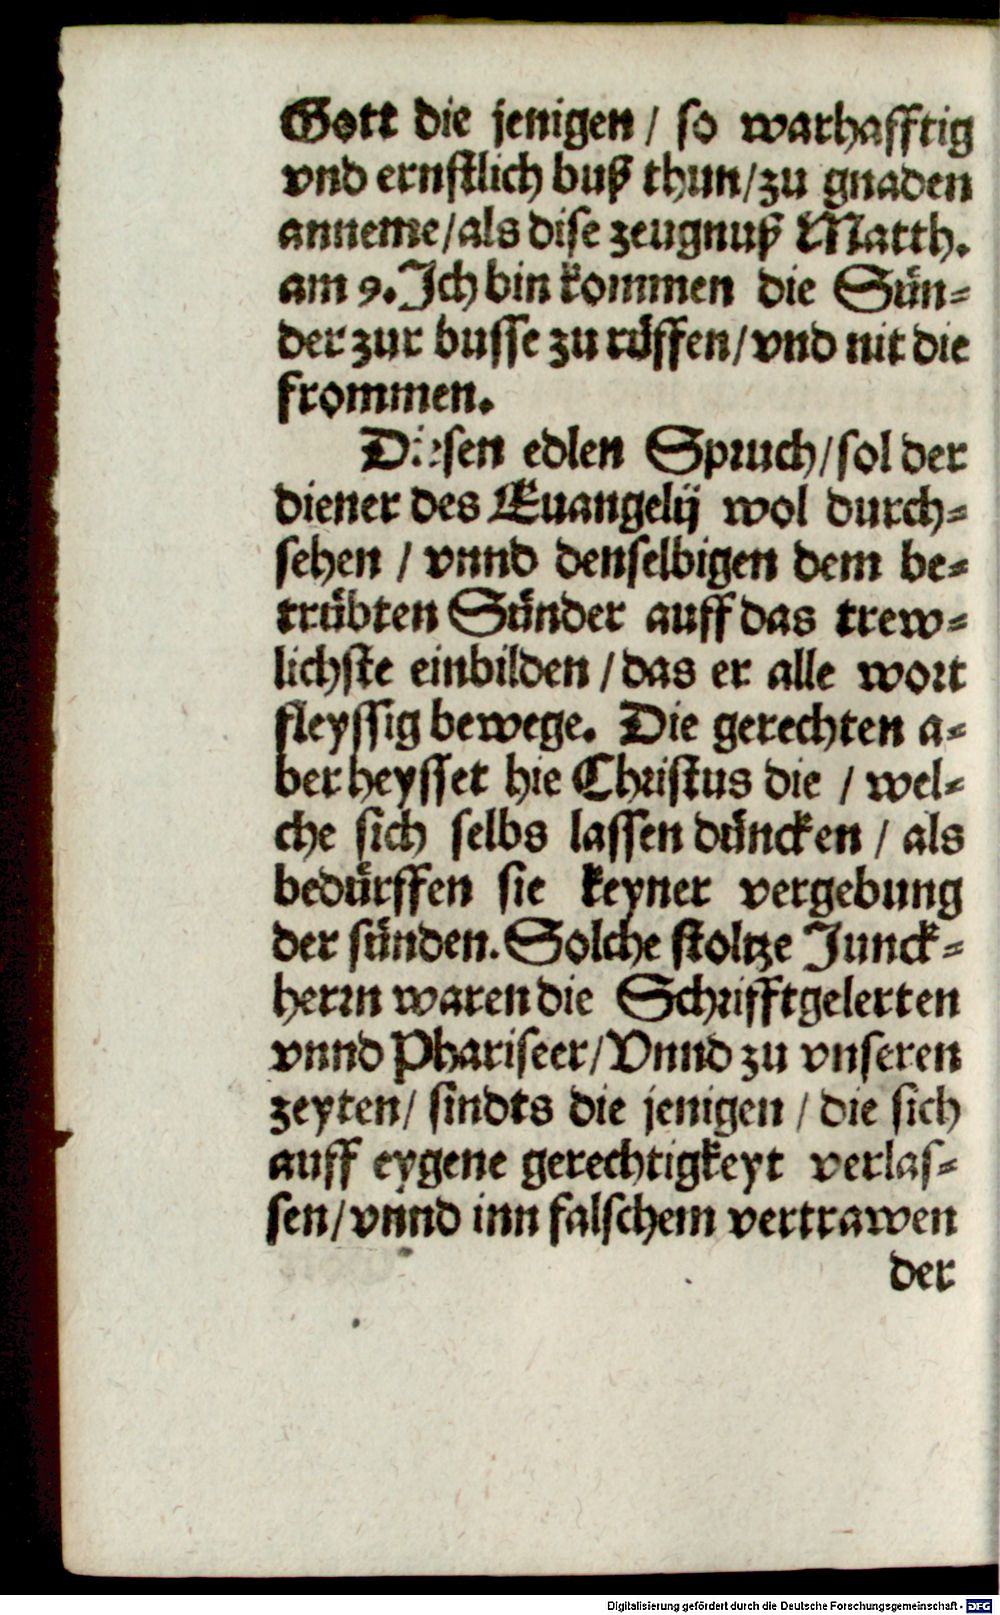 Gott die jenigen / so warhafftig
vnd ernstlich buß thun/zu gnaden
anneme/als dise zeugnuß Matth.
am 9. Ich bin kommen die Sün-
der zur busse zu rüffen/vnd nit die
frommen.
Diesen edlen Spruch/sol der
diener des Euangelij wol durch-
sehen / vnnd denselbigen dem be-
trübten Sünder auff das trew-
lichste einbilden / das er alle wort
fleyssig bewege. Die gerechten a-
ber heysset hie Christus die / wel-
che sich selbs lassen düncken / als
bedürffen sie keyner vergebung
der sünden. Solche stoltze Junck-
herrn waren die Schrifftgelerten
vnnd Phariseer/Vnnd zu vnseren
zeyten/ sindts die jenigen / die sich
auff eygene gerechtigkeyt verlas-
sen/vnnd inn falschem vertrawen
der
Digitalisierung gefördert durch die Deutsche Forschungsgemeinschaft - DFG